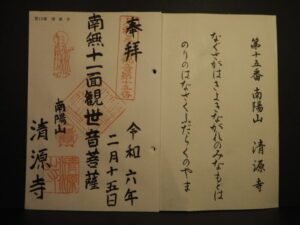 第十五番 南陽山 清源寺
なぐさがはきときながれのみなもとは
のりのはなさくふだらくのやま
奉拝
令和六年
二月十五日
南無十一面観世音菩薩
南陽山
清源寺